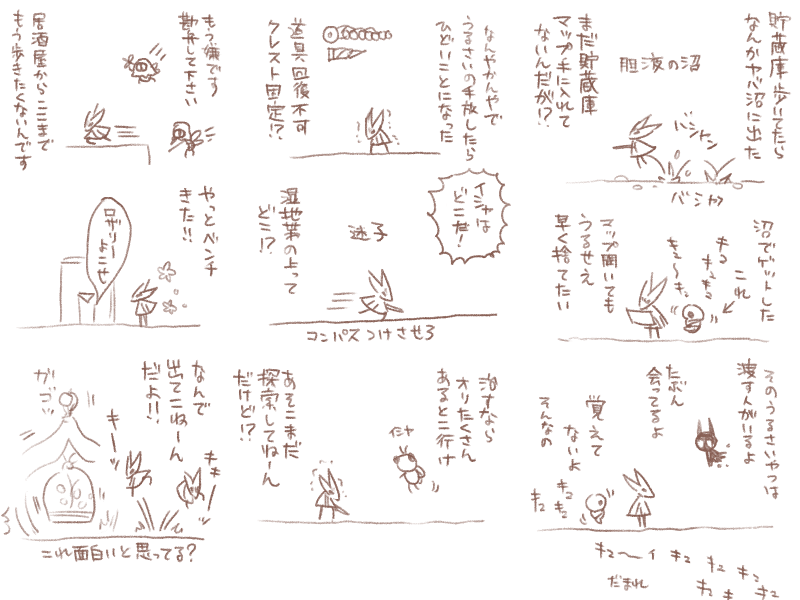 貯蔵庫歩いてたら
なんかヤバい沼に出た
胆液の沼
まだ貯蔵庫
マップ手に入れて
ないんだが!?
バシャン
バシャッ
沼でゲットした
これ
キュ
キュキュ
キュ〜キュ
マップ開いても
うるせえ
早く捨てたい
そのうるさいやつは
渡す人がいるよ
たぶん
会ってるよ
覚えて
ないよ
そんなの
キュ
キュ
キュ
キュ〜イ
キュ
キュ
キュ
キュ
キュ
キュ
だまれ
なんやかんやで
うるさいの手放したら
ひどいことになった
道具回復不可
クレスト固定!?
イシャは
どこだ!
迷子
湿地帯の上って
どこ!?
コンパスつけさせろ
治すなら
オリたくさん
あるとこ行け
イシャ
あそこまだ
探索してねーん
だけど!?
もう嫌です
勘弁して下さい
居酒屋からここまで
もう歩きたくないんです
やっとベンチ
きた!!
ロザリー
よこせ
なんで
出てこねーん
だよ!!
キーッ
キキーッ
ガゴッ
これ面白いと思ってる?